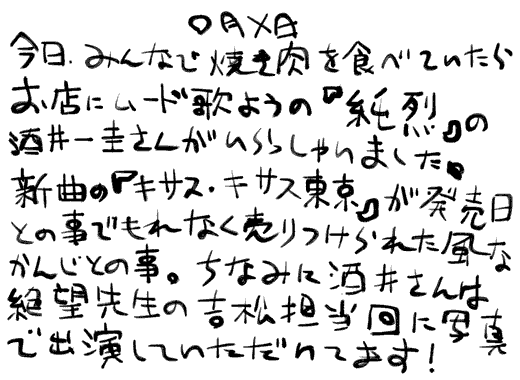 〇月×日
今日、みんなで焼き肉を食べていたら
お店にムード歌ようの『純烈』の
酒井一圭さんがいらっしゃいました。
新曲の『キサス・キサス東京』が発売日
との事でもれなく売りつけられた風な
かんじとの事。ちなみに酒井さんは
絶望先生の吉松担当回に写真
で出演していただいてます！